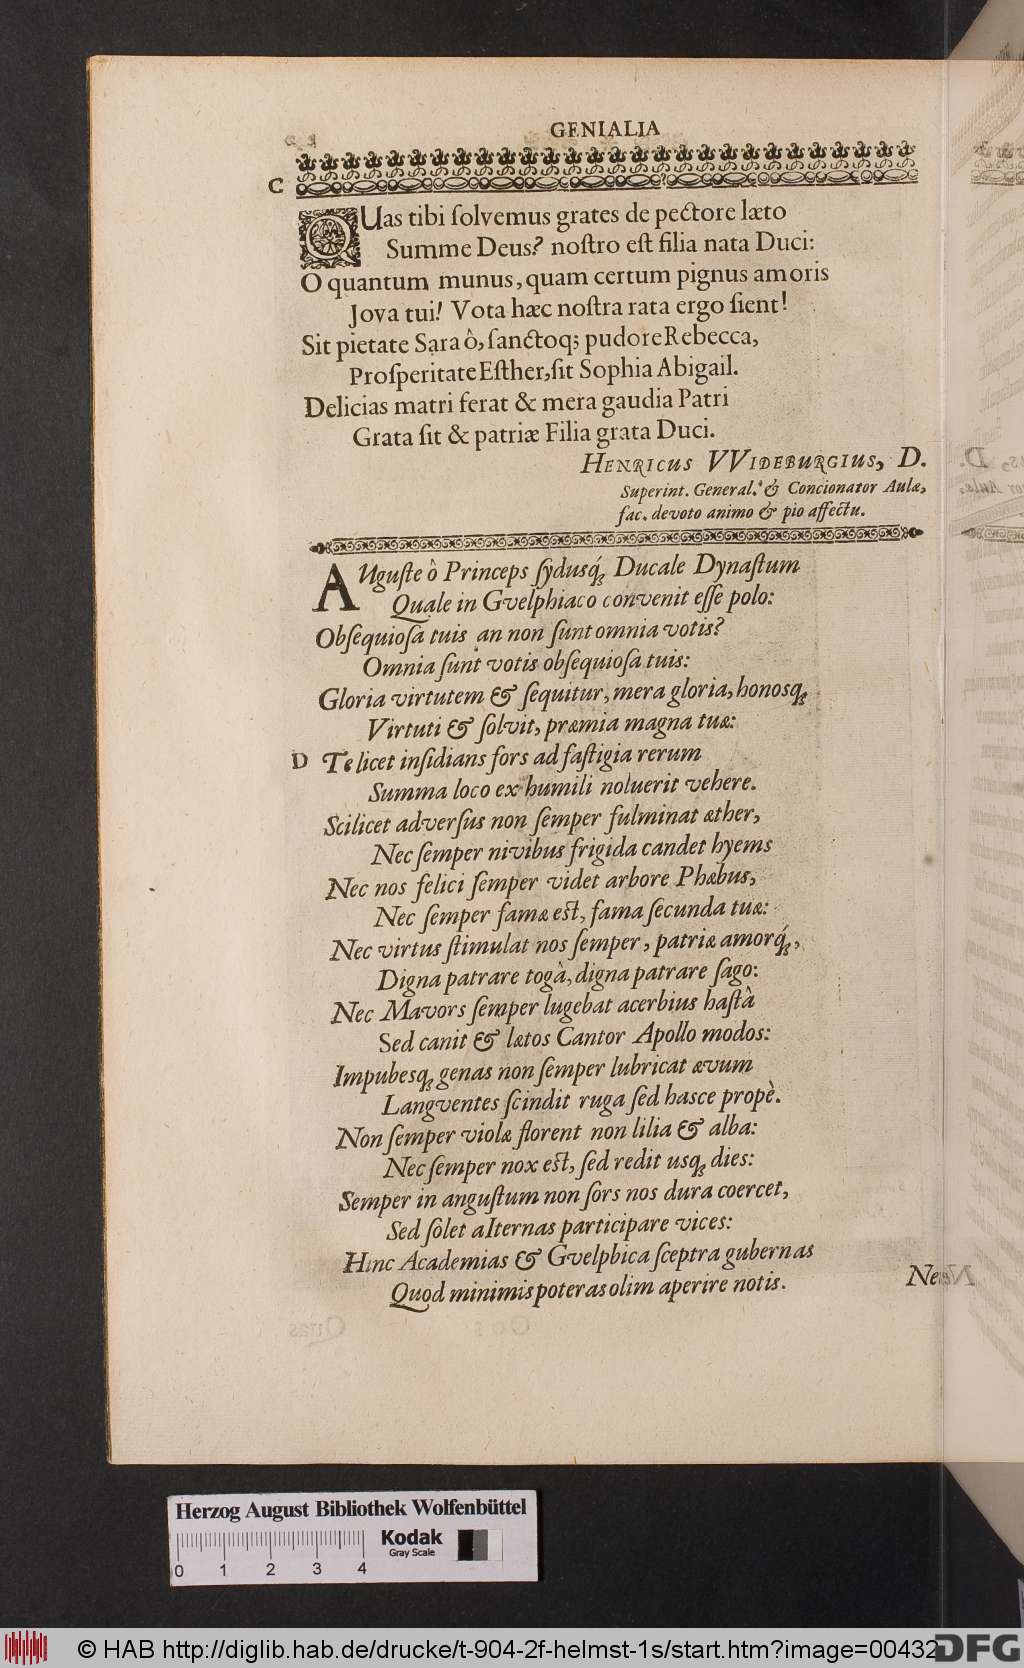 GENIALIA
C
QUas tibi ſolvemus grates de pectore læto
Summe Deus? noſtro eſt filia nata Duci:
O quantum munus, quam certum pignus amoris
Jova tui! Vota hæc noſtra rata ergo fient!
Sit pietate Sara ô, ſanctoq; pudore Rebecca,
Proſperitate Eſther, ſit Sophia Abigail.
Delicias matri ferat & mera gaudia Patri
Grata ſit & patriæ Filia grata Duci.
HENRICUS VVIDEBURGIUS, D.
Superint. General. & Concionator Aulæ,
fac. devoto animo & pio affectu.
AUguſte ô Princeps ſydusq́; Ducale Dynaſtum
Quale in Gvelphiaco convenit eſſe polo:
Obſequioſa tuis an non ſunt omnia votis?
Omnia ſunt votis obſequioſa tuis:
Gloria virtutem & ſequitur, mera gloria, honosq;
Virtuti & ſolvit, præmia magna tuæ:
D Te licet inſidians fors ad faſtigia rerum
Summa loco ex humili noluerit vehere.
Scilicet adverſus non ſemper fulminat æther,
Nec ſemper nivibus frigida candet hyems
Nec nos felici ſemper videt arbore Phæbus,
Nec ſemper famæ eſt, fama ſecunda tuæ:
Nec virtus ſtimulat nos ſemper, patriæ amorq́;,
Digna patrare togà, digna patrare ſago:
Nec Mavors ſemper lugebat acerbius haſtâ
Sed canit & lætos Cantor Apollo modos:
Impubesq; genas non ſemper lubricat ævum
Langventes ſcindit ruga ſed hasce propè.
Non ſemper violæ florent non lilia & alba:
Nec ſemper nox eſt, ſed redit usq; dies:
Semper in anguſtum non ſors nos dura coercet,
Sed ſolet alternas participare vices:
Hinc Academias & Gvelphica ſceptra gubernas
Quod minimis poteras olim aperire notis.
Nec
Herzog August Bibliothek Wolfenbüttel
Kodak
Gray Scale
0 1 2 3 4
© HAB http://diglib.hab.de/drucke/t-904-2f-helmst-1s/start.htm?image=00432
DFG